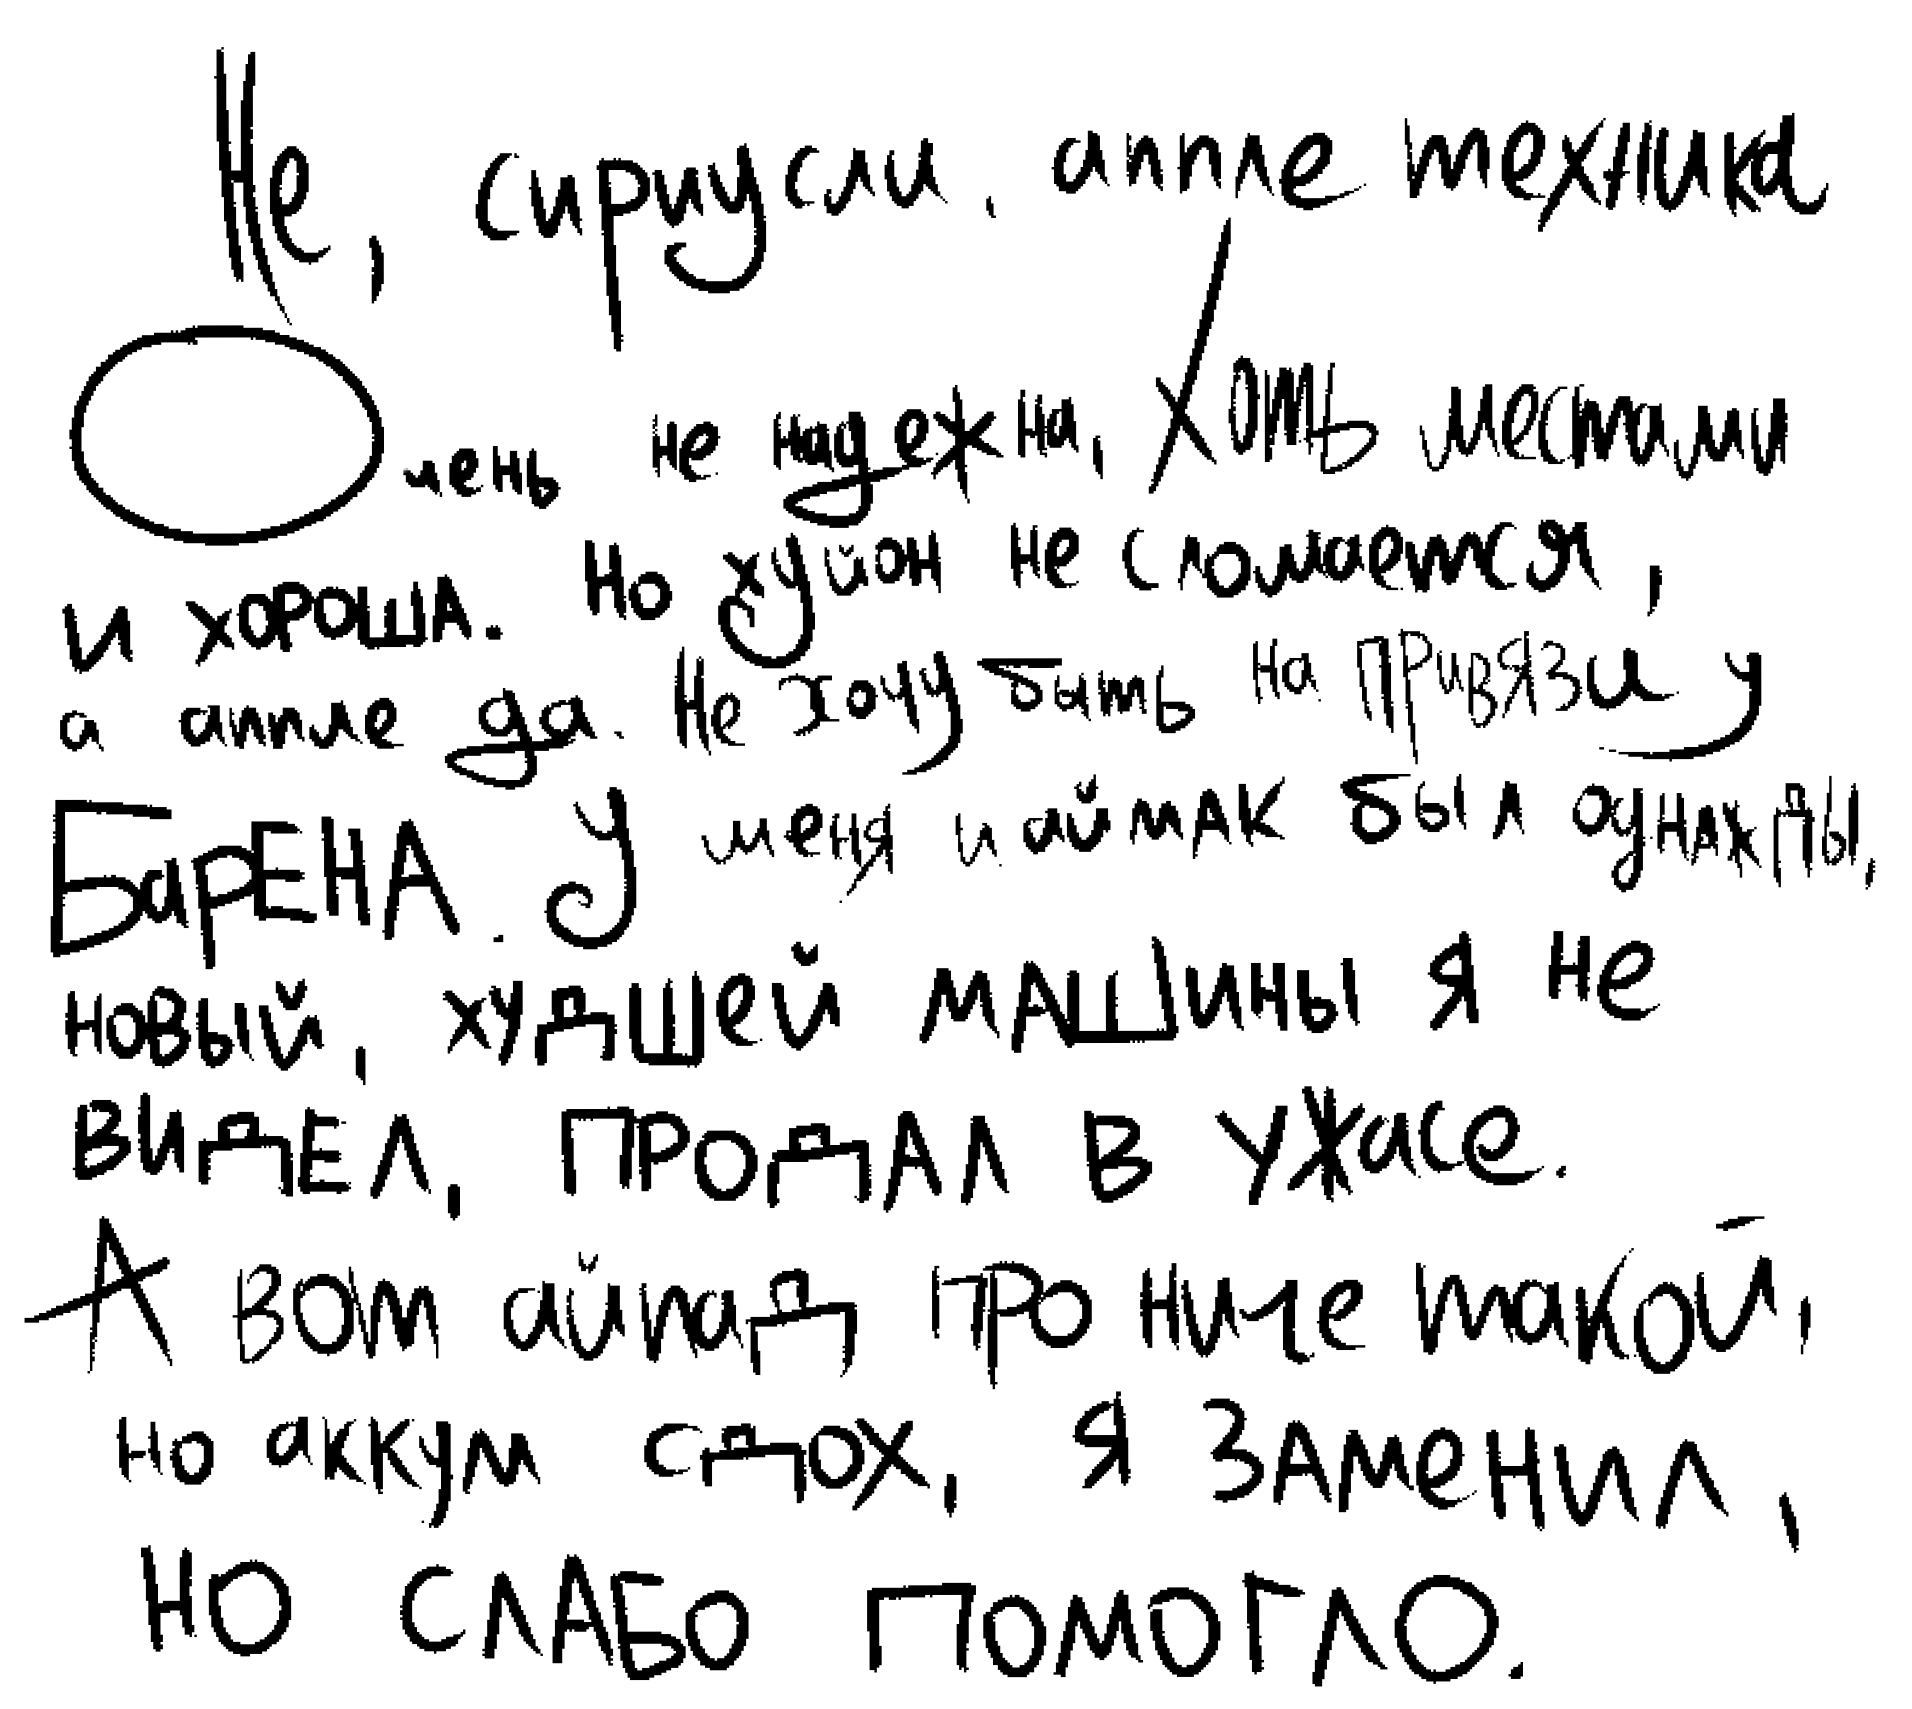 Не, сириусли, аппле техника
Очень не надежна, хоть местами
и ХОРОША. Но хуйон не сломается,
а аппле да. Не хочу быть на привязи у
БАРЕНА. У меня и аймак был однажды,
новый, худшей машины я не
видел, продал в ужасе.
А вот айпад про ниче такой,
но аккум сдох, я заменил,
но слабо помогло.